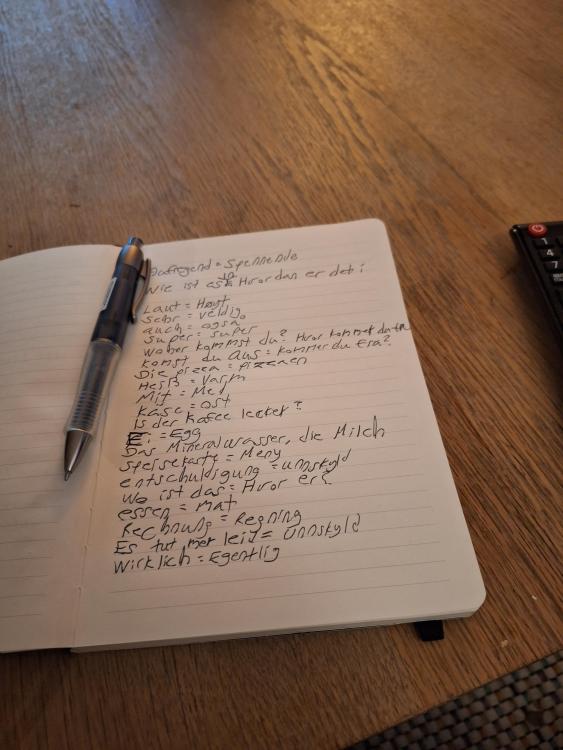 Aufregend = Spennende
Wie ist es in = Hvordan er det i
Laut = Høyt
Sehr = veldig
auch = også
super = super
Woher kommst du? Hvor kommer du fra
komst du aus = kommer du fra?
Die pizzen = pizzaen
Heiß = Varm
Mit = Med
Käse = ost
Is der Kafee lecker?
Ei = Egg
Das Mineralwasser, die Milch
Speisekarte = Meny
entschuldigung = unnskyld
Wo ist das = Hvor er
essen = mat
Rechnung = Regning
Es tut mer leid = Unnskyld
Wirklich = Egentlig
1
4
7